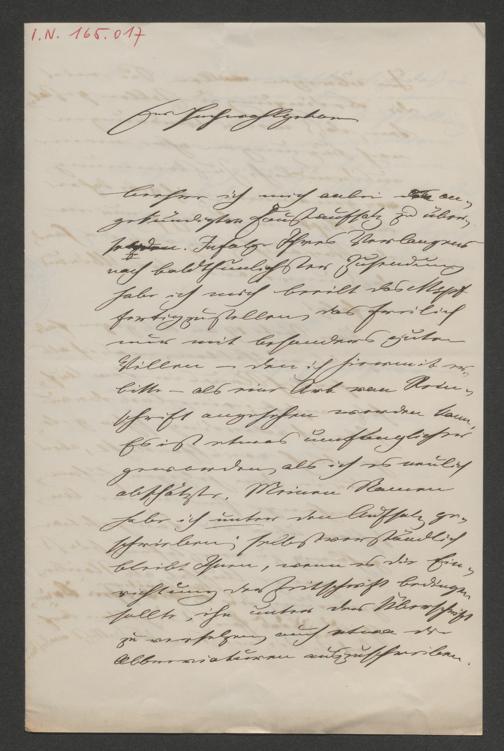 I.N. 165.017
Euer Hochwohlgeboren
beehre ich mich anbei den an-
gekündigten Faustaufsatz zu über-
senden. Infolge Ihres Verlangens
nach baldthunlichster Zusendung
habe ich mich beeilt das Mspt
fertigzustellen, das freilich
nur mit besonders gutem
Willen – den ich hiermit er-
bitte – als eine Art von Rein-
schrift angesehen werden kann.
Es ist etwas umfänglicher
geworden, als ich es neulich
abschätzte. Meinen Namen
habe ich unter den Aufsatz ge-
schrieben; selbstverständlich
bleibt Ihnen, wenn es die Ein-
richtung der Zeitschrift bedingen
sollte, ihn unter das Überschrift
zu versetzen, auch etwa die
Abbreviaturen auszuschreiben.